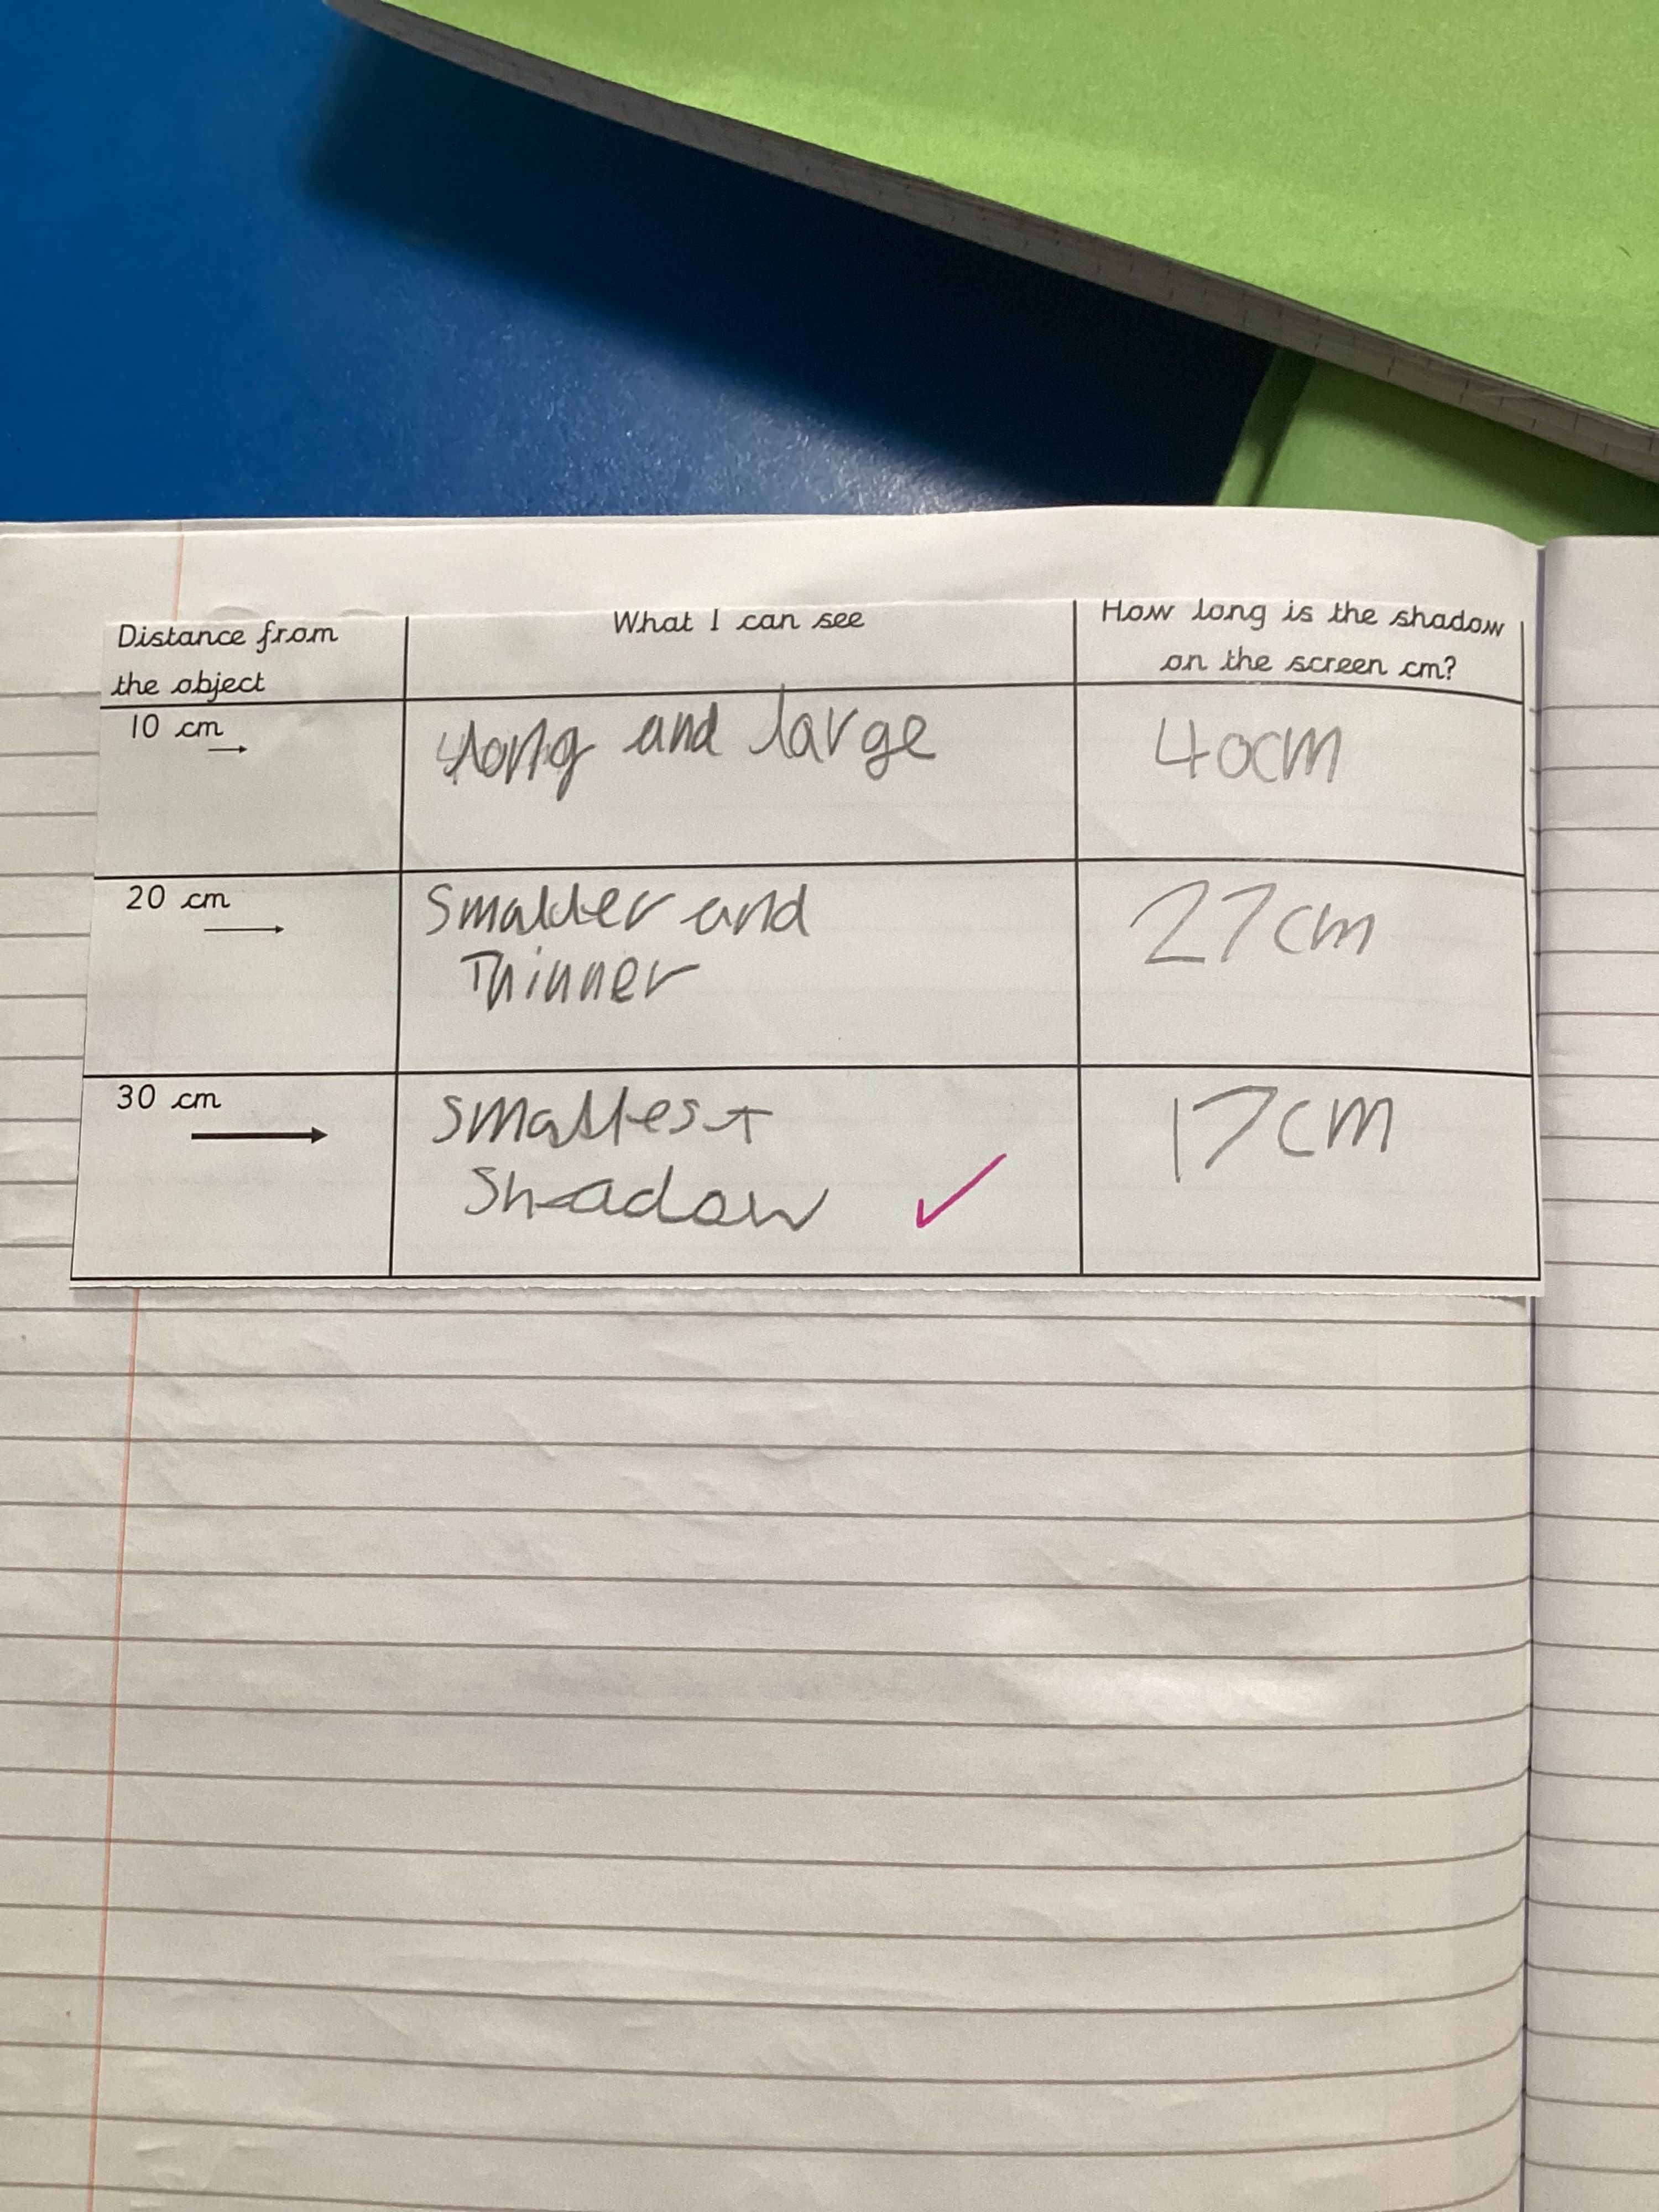 Distance from
the object
What I can see
How long is the shadow
on the screen cm?
10 cm
long and large
40cm
20 cm
Smaller and
Thinner
27cm
30 cm
Smallest
Shadow
17cm